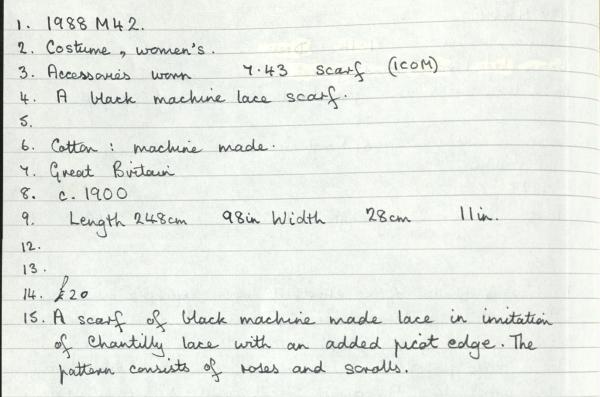 1. 1988 M42.
2. Costume, women's.
3. Accessories worn 7.43 scarf (ICOM)
4. A black machine lace scarf.
5.
6. Cotton : machine made.
7. Great Britain
8. c. 1900
9. Length 248cm 98in Width 28cm 11in.
12.
13.
14. £20
15. A scarf of black machine made lace in imitation
of Chantilly lace with an added picot edge. The
pattern consists of roses and scrolls.